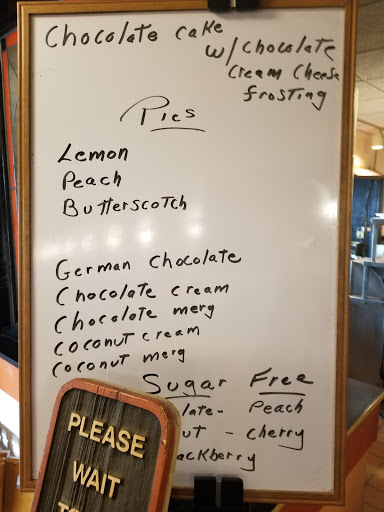 Chocolate cake
w/chocolate
cream cheese
frosting
Pies
Lemon
Peach
Butterscotch
German Chocolate
Chocolate cream
Chocolate merg
Coconut cream
Coconut merg
Sugar Free
late- Peach
ut - cherry
ackberry
PLEASE
WAIT